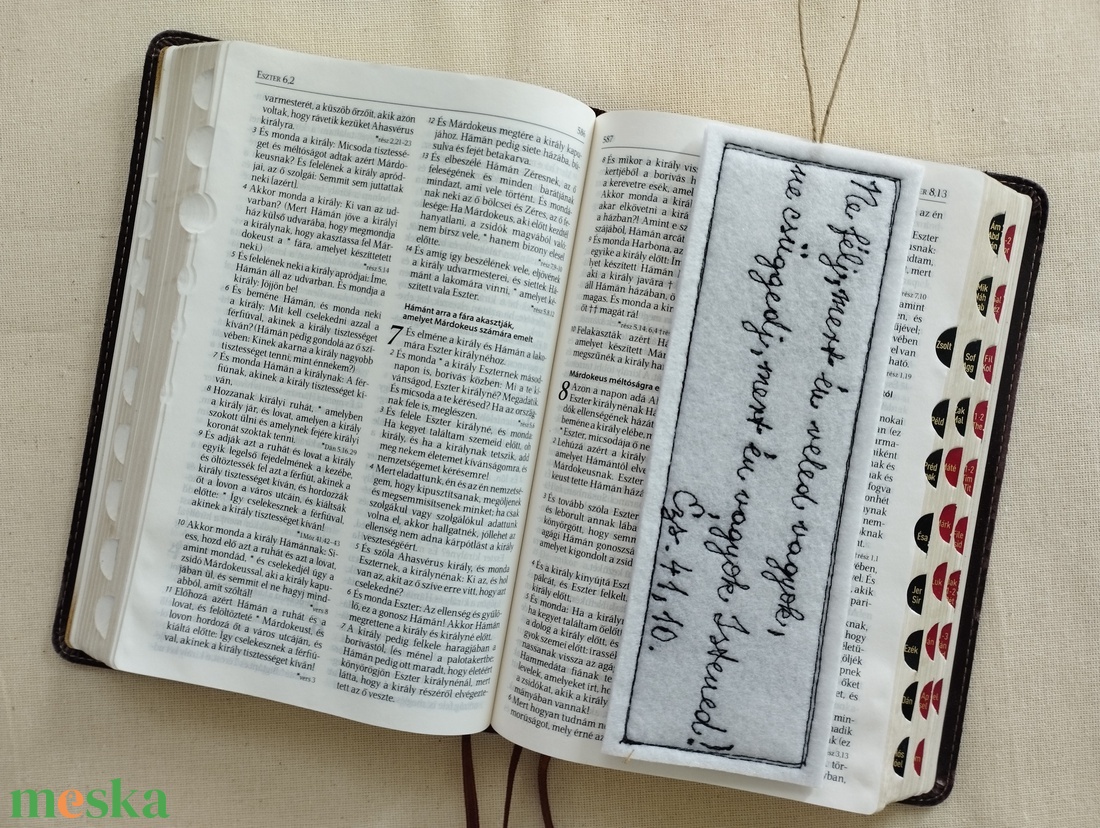 ESZTER 6.2
varmesterét, a küszöb őrzőit, akik azon
voltak, hogy rávetik kezüket Ahasvérus
királyra.
*rész 2,21-23
3 És monda a király: Micsoda tisztessé-
get és méltóságot adtak azért Márdo-
keusnak? És felelének a király apród-
jai, az ő szolgái: Semmit sem juttattak
neki [azért].
4 Akkor monda a király: Ki van az ud-
varban? (Mert Hámán jöve a királyi
ház külső udvarába, hogy megmondja
a királynak, hogy akasztassa fel Már-
dokeust a * fára, amelyet készíttetett
neki.)
*rész 5,14
5 És felelének neki a király apródjai: Íme,
Hámán áll az udvarban. És monda a
király: Jöjjön be!
6 És beméne Hámán, és monda neki
a király: Mit kell cselekedni azzal a
férfiúval, akinek a király tisztességet
kíván? (Hámán pedig gondolá az ő szí-
vében: Kinek akarna a király nagyobb
tisztességet tenni, mint énnekem?)
7 És monda Hámán a királynak: A fér-
fiúnak, akinek a király tisztességet kí-
ván,
8 Hozzanak királyi ruhát, * amelyben
a király jár, és lovat, amelyen a király
szokott ülni és amelynek fejére királyi
koronát szoktak tenni.
*Dán 5,16.29
9 És adják azt a ruhát és lovat a király
egyik legelső fejedelmének a kezébe,
és öltöztessék fel azt a férfiút, akinek a
király tisztességet kíván, és hordozzák
őt a lovon a város utcáin, és kiáltsák
előtte: * Így cselekesznek a férfiúval,
akinek a király tisztességet kíván!
*1Móz 41,42-43
10 Akkor monda a király Hámánnak: Si-
ess, hozd elő azt a ruhát és azt a lovat,
amint mondád, * és cselekedjél úgy a
zsidó Márdokeussal, aki a király kapu-
jában ül, és semmit el ne hagyj mind-
abból, amit szóltál!
*vers 8
11 Előhozá azért Hámán a ruhát és a
lovat, és felöltözteté * Márdokeust, és
lovon hordozá őt a város utcáin, és
kiáltá előtte: Így cselekesznek a férfiú-
val, akinek a király tisztességet kíván!
*vers 3
586
12 És Márdokeus megtére a király kapu-
jához. Hámán pedig siete házába, bú-
sulva és fejét betakarva.
13 És elbeszélé Hámán Zéresnek, az ő
feleségének és minden barátjának
mindazt, ami vele történt. És monda-
nak neki az ő bölcsei és Zéres, az ő fe-
lesége: Ha Márdokeus, aki előtt kezdtél
hanyatlani, a zsidók magvából való:
nem bírsz vele, * hanem bizony elesel
előtte.
*rész 7,9-10
14 És amíg így beszélének vele, eljövének
a király udvarmesterei, és siettek Há-
mánt a lakomára vinni, * amelyet ké-
szített vala Eszter.
*rész 5,8.12
Hámánt arra a fára akasztják,
amelyet Márdokeus számára emelt
7 És elméne a király és Hámán a lako-
mára Eszter királynéhoz.
2 És monda * a király Eszternek másod-
napon is, borivás közben: Mi a te kí-
vánságod, Eszter királyné? Megadatik.
És micsoda a te kérésed? Ha az ország-
nak fele is, meglészen.
*rész 5,6
3 És felele Eszter királyné, és monda:
Ha kegyet találtam szemeid előtt, oh
király, és ha a királynak tetszik, add
meg nekem életemet kívánságomra, és
nemzetségemet kérésemre!
4 Mert eladattunk, én és az én nemzetsé-
gem, hogy kipusztítsanak, megöljenek
és megsemmisítsenek minket; ha csak
szolgákul vagy szolgálókul adattunk
volna el, akkor hallgatnék, jóllehet az
ellenség nem adna kárpótlást a király
veszteségéért.
5 És szóla Ahasvérus király, és monda
Eszternek, a királynénak: Ki az, és hol
van az, akit az ő szíve erre vitt, hogy azt
cselekedné?
6 És monda Eszter: Az ellenség és gyűlö-
lő, ez a gonosz Hámán! Akkor Hámán
megrettene a király és királyné előtt.
7 A király pedig felkele haragjában a
borivástól, [és méne] a palotakertbe;
Hámán pedig ott maradt, hogy életéért
könyörögjön Eszter királynénál, mert
látta, hogy a király részéről elvégezte-
tett az ő veszte.
587
8 És mikor a király viss
kertjéből a borivás h
a kerevetre esék, amel
Akkor monda a kirá
akar elkövetni a kirá
a házban?! Amint e sz
szájából, Hámán arcát
9 És monda Harbona, az
egyike a király előtt: Ím
lyet készített Hámán
aki a király javára †
áll Hámán házában, ö
magas. És monda a kir
őt †† magát rá!
10 Felakaszták azért Há
amelyet készített Már
megszűnék a király ha
Márdokeus méltóságra e
8 Azon a napon adá A
Eszter királynénak Há
dók ellenségének házát
beméne a király elébe, m
*Eszter, micsodája ő ne
2 Lehúzá azért a király
amelyet Hámántól elve
Márdokeusnak. Eszter
keust tette Hámán házá
3 És tovább szóla Eszter
és leborult annak lába
könyörgött, hogy semm
agági Hámán gonoszsá
amelyet kigondolt a zsid
4 És a király kinyújtá Eszt
pálcát, és Eszter felkelt,
király előtt.
5 És monda: Ha a királyn
ha kegyet találtam őelőtt
a dolog a király előtt, és
gyok szemei előtt: írassél
nassanak vissza az agági
Hammedáta fiának te
levelek, amelyeket írt, ho
a zsidókat, akik a király
mányában vannak!
6 Mert hogyan tudnám né
morúságot, mely érné az
Ne félj, mert én veled vagyok,
ne csüggedj, mert én vagyok Istened!
Ézs. 41,10.
R 8.13
Zsolt
Péld
Préd
Ésa
Jer
Sir
Ezék
Dán
Sof
Agg
Zak
Mal
Máté
Márk
Luk
Fil
Kol
1-2
Tim
Tit
meska